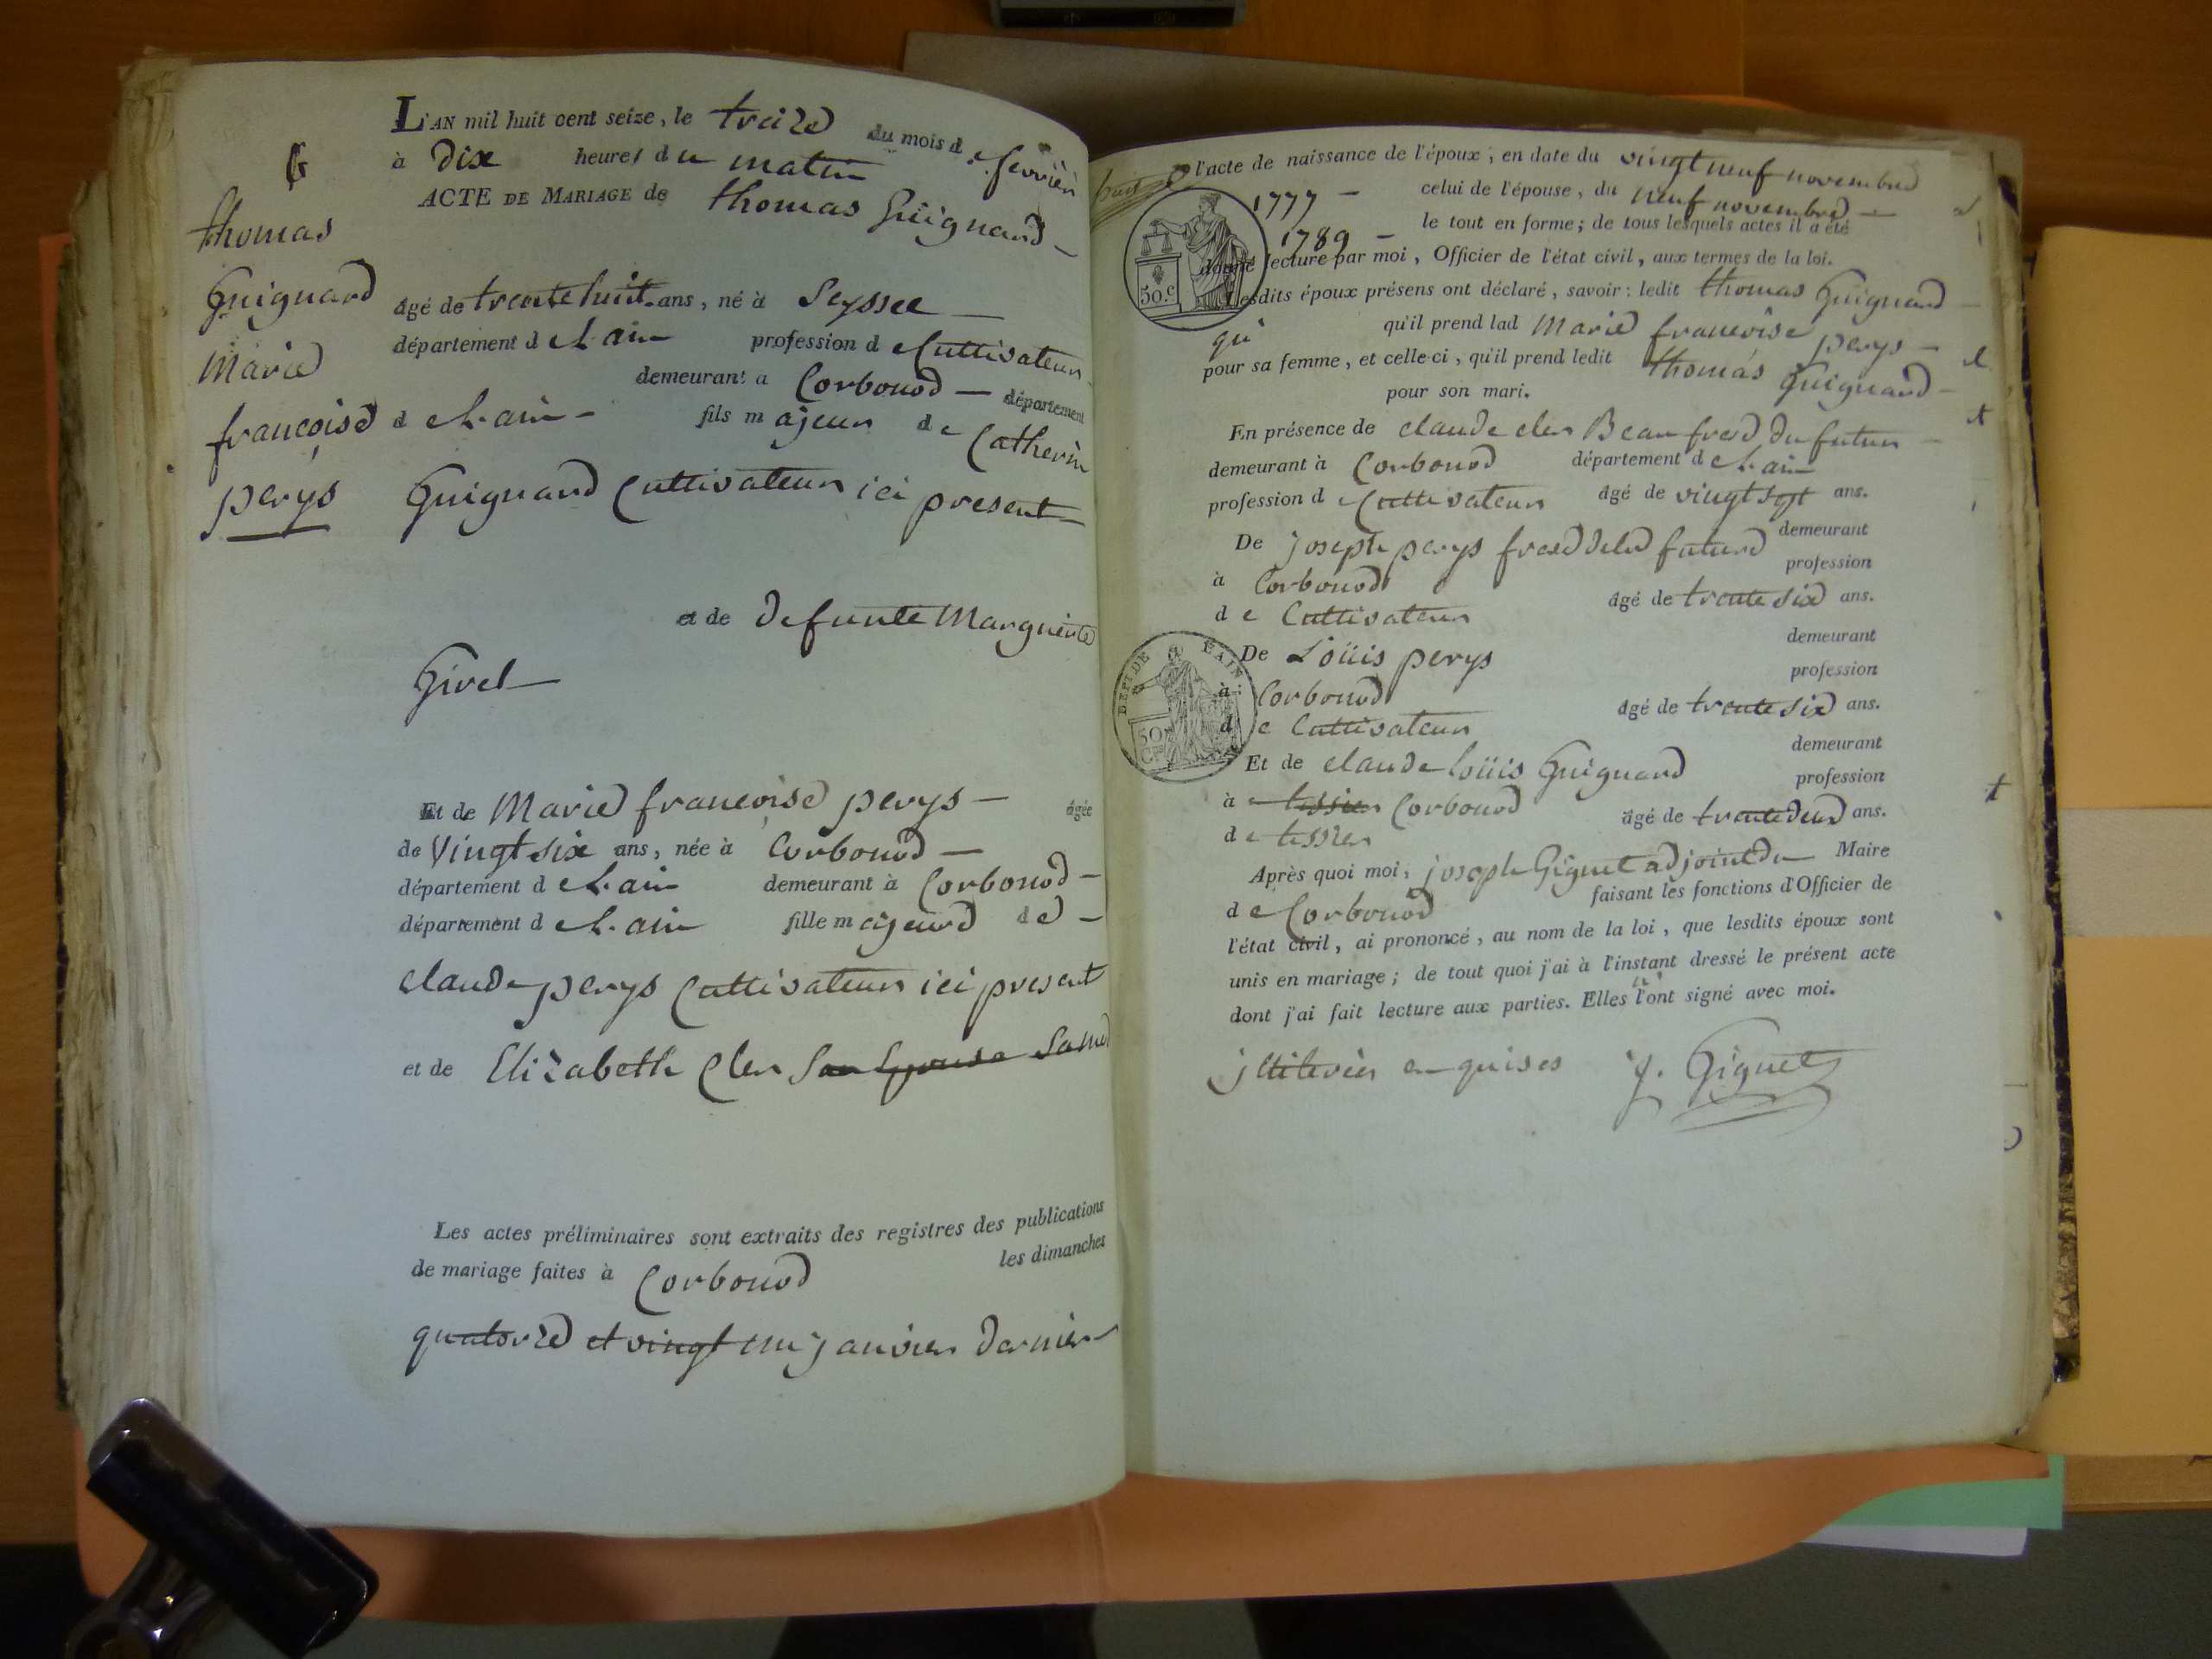 6
thomas
Guignard
Marie
françoise
perys
L'AN mil huit cent seize, le treize du mois de fevrier
à dix heures du matin
ACTE DE MARIAGE de thomas Guignard
âgé de trente huit ans, né à Seyssel
département de l'ain profession de Cultivateur
demeurant a Corbonod département
de l'ain fils majeur de Catherin
Guignard Cultivateur ici present
et de defunte Marguerite
Girel
Et de Marie françoise perys âgée
de Vingt six ans, née à Corbonod
département de l'ain demeurant à Corbonod
département de l'ain fille majeure de
claude perys Cultivateur ici present
et de Elizabeth Cler
Les actes préliminaires sont extraits des registres des publications
de mariage faites à Corbonod les dimanches
quatorze et vingt un janvier dernier
l'acte de naissance de l'époux, en date du vingt neuf novembre
1777 celui de l'épouse, du neuf novembre
1789 le tout en forme; de tous lesquels actes il a été
donné lecture par moi, Officier de l'état civil, aux termes de la loi.
50.c
Lesdits époux présens ont déclaré, savoir: ledit thomas Guignard
qu'il prend lad Marie françoise perys
pour sa femme, et celle-ci, qu'il prend ledit thomas Guignard
pour son mari.
En présence de claude cler Beau frere du futur
demeurant à Corbonod département de l'ain
profession de Cultivateur âgé de vingt sept ans.
De joseph perys frere de la future demeurant
à Corbonod profession
de Cultivateur âgé de trente six ans.
De Loüis perys demeurant
à Corbonod profession
de Cultivateur âgé de trente six ans.
DEP.T DE L'AIN
50 C.ES
Et de claude loüis Guignard demeurant
à tissier Corbonod profession
de tissier âgé de trente deux ans.
Après quoi moi, joseph Giguet adjoint du Maire
de Corbonod faisant les fonctions d'Officier de
l'état civil, ai prononcé, au nom de la loi, que lesdits époux sont
unis en mariage; de tout quoi j'ai à l'instant dressé le présent acte
dont j'ai fait lecture aux parties. Elles l'ont signé avec moi.
J. Giguet